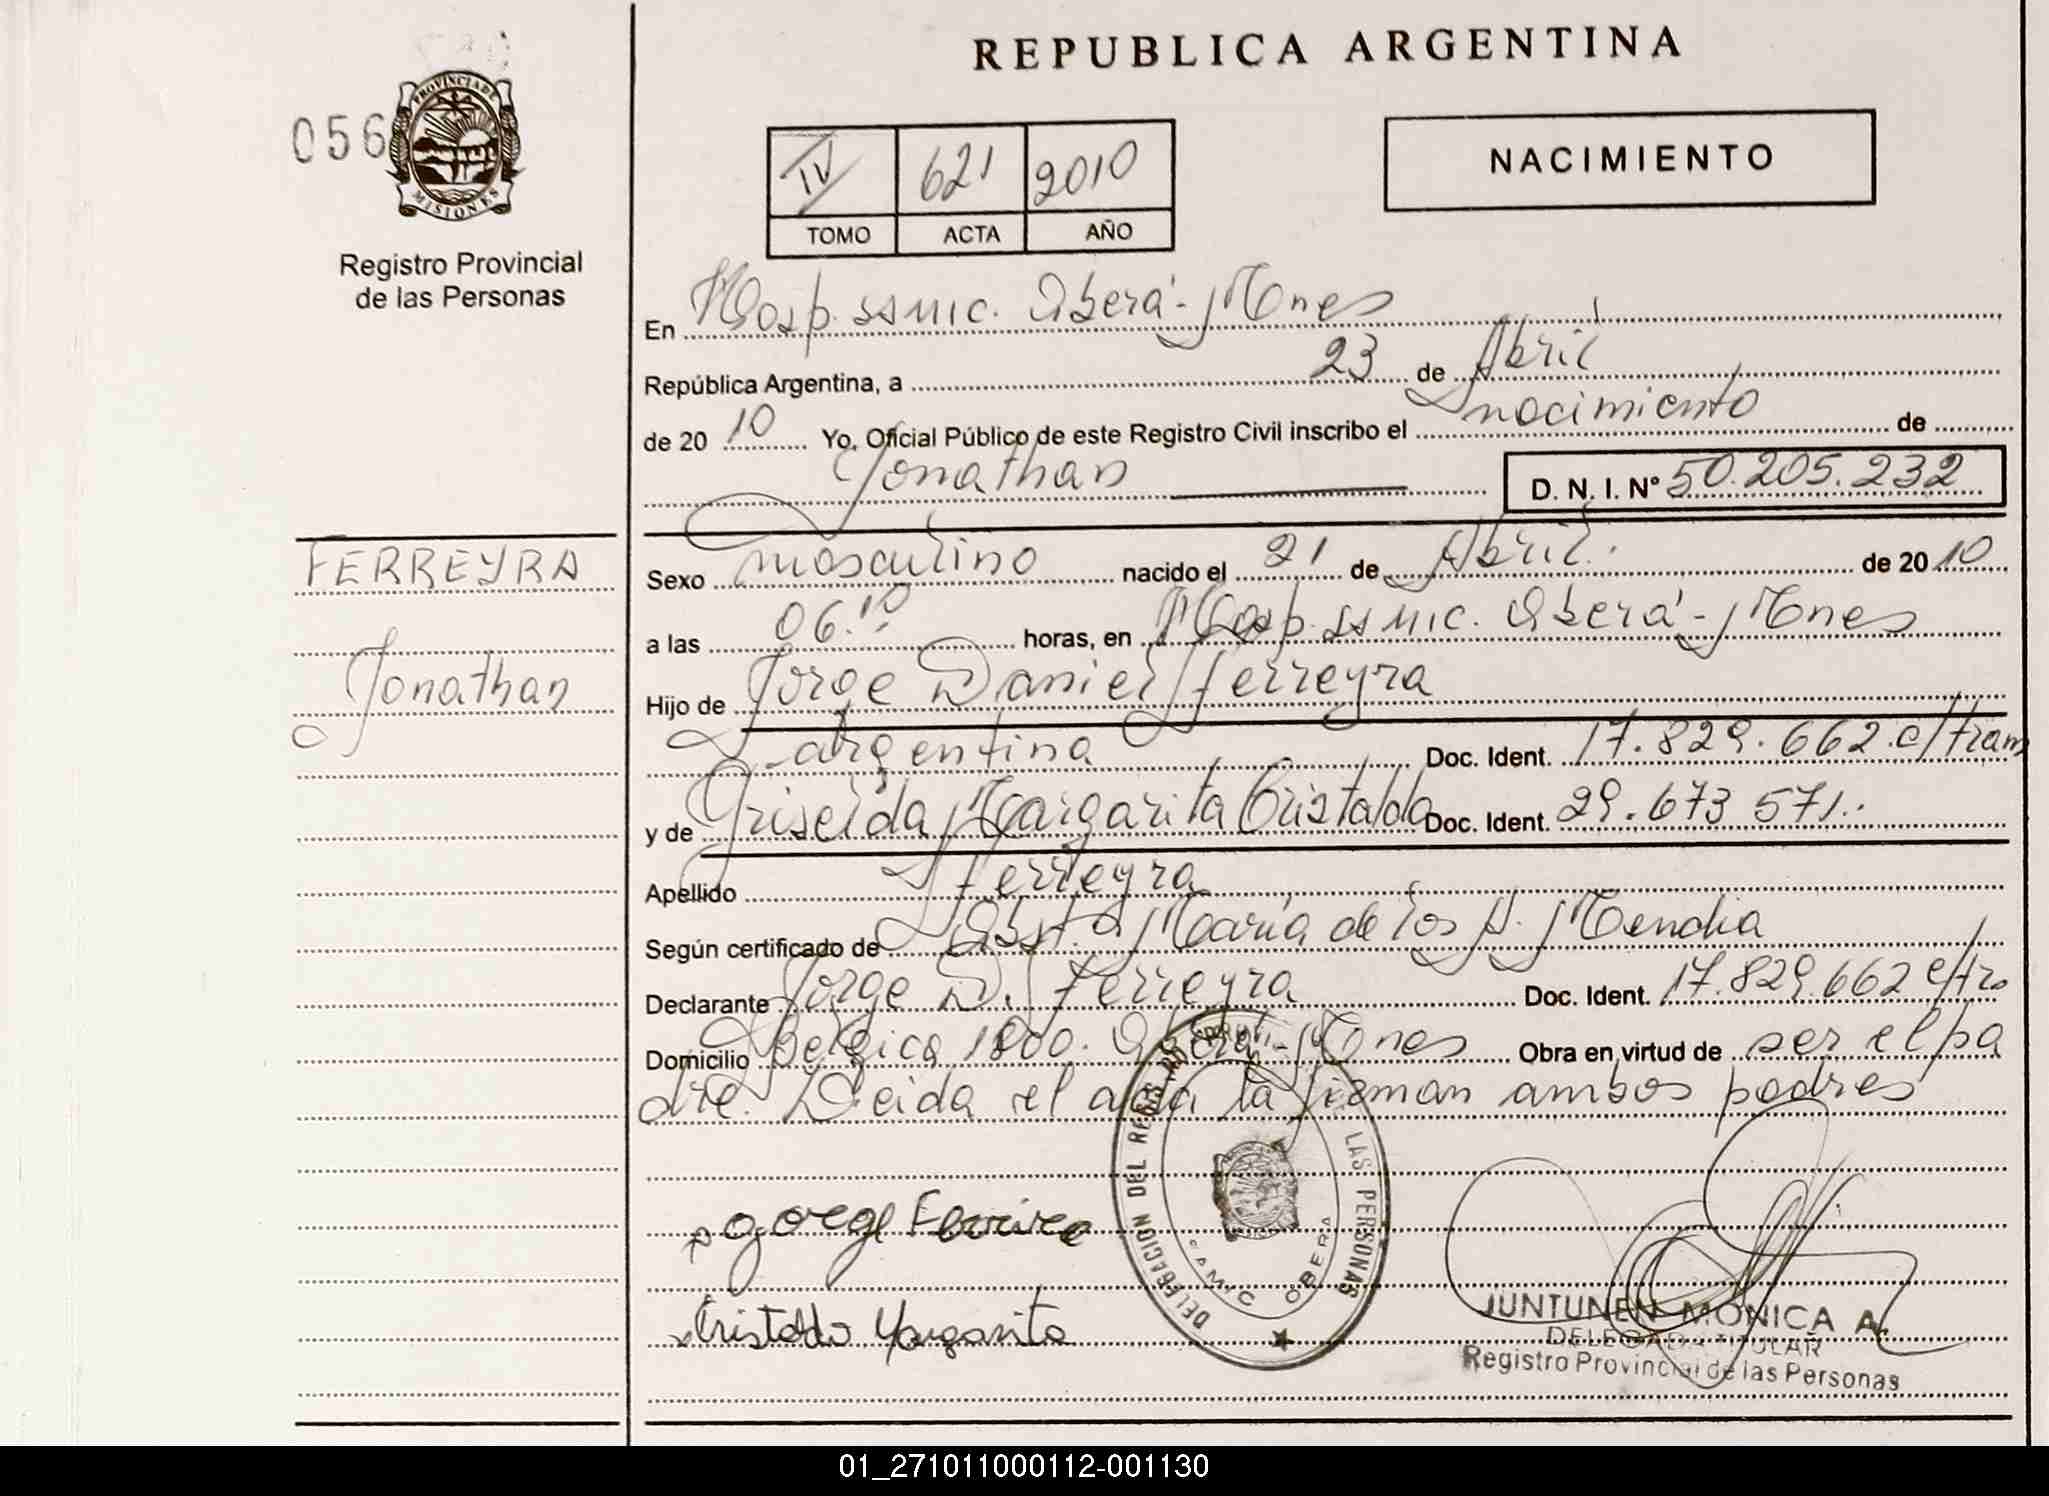 REPUBLICA ARGENTINA
056
PROVINCIA DE
MISIONES
Registro Provincial
de las Personas
IV 621 2010
TOMO ACTA AÑO
NACIMIENTO
En Hosp. SAMIC. Oberá - Mnes
República Argentina, a 23 de Abril
de 20 10 Yo, Oficial Público de este Registro Civil inscribo el nacimiento de
Jonathan D. N. I. N° 50.205.232
FERREYRA
Jonathan
Sexo masculino nacido el 21 de Abril. de 20 10
a las 06.10 horas, en Hosp. SAMIC. Oberá - Mnes
Hijo de Jorge Daniel Ferreyra
argentina Doc. Ident. 17.829.662 c/tram
y de Griselda Margarita Cristaldo Doc. Ident. 29.673 571.
Apellido Ferreyra
Según certificado de Obst.a María de los A. Mendia
Declarante Jorge D. Ferreyra Doc. Ident. 17.829.662 c/tra
Domicilio Belgica 1800. Oberá - Mnes Obra en virtud de ser el pa
dre. Leida el acta la firman ambos padres
Jorge Ferreira
Cristaldo Margarita
DELEGACION DEL LAS PERSONAS
SAMIC OBERA
JUNTUNEN MONICA A.
DELEGADA TITULAR
Registro Provincial de las Personas
01_271011000112-001130